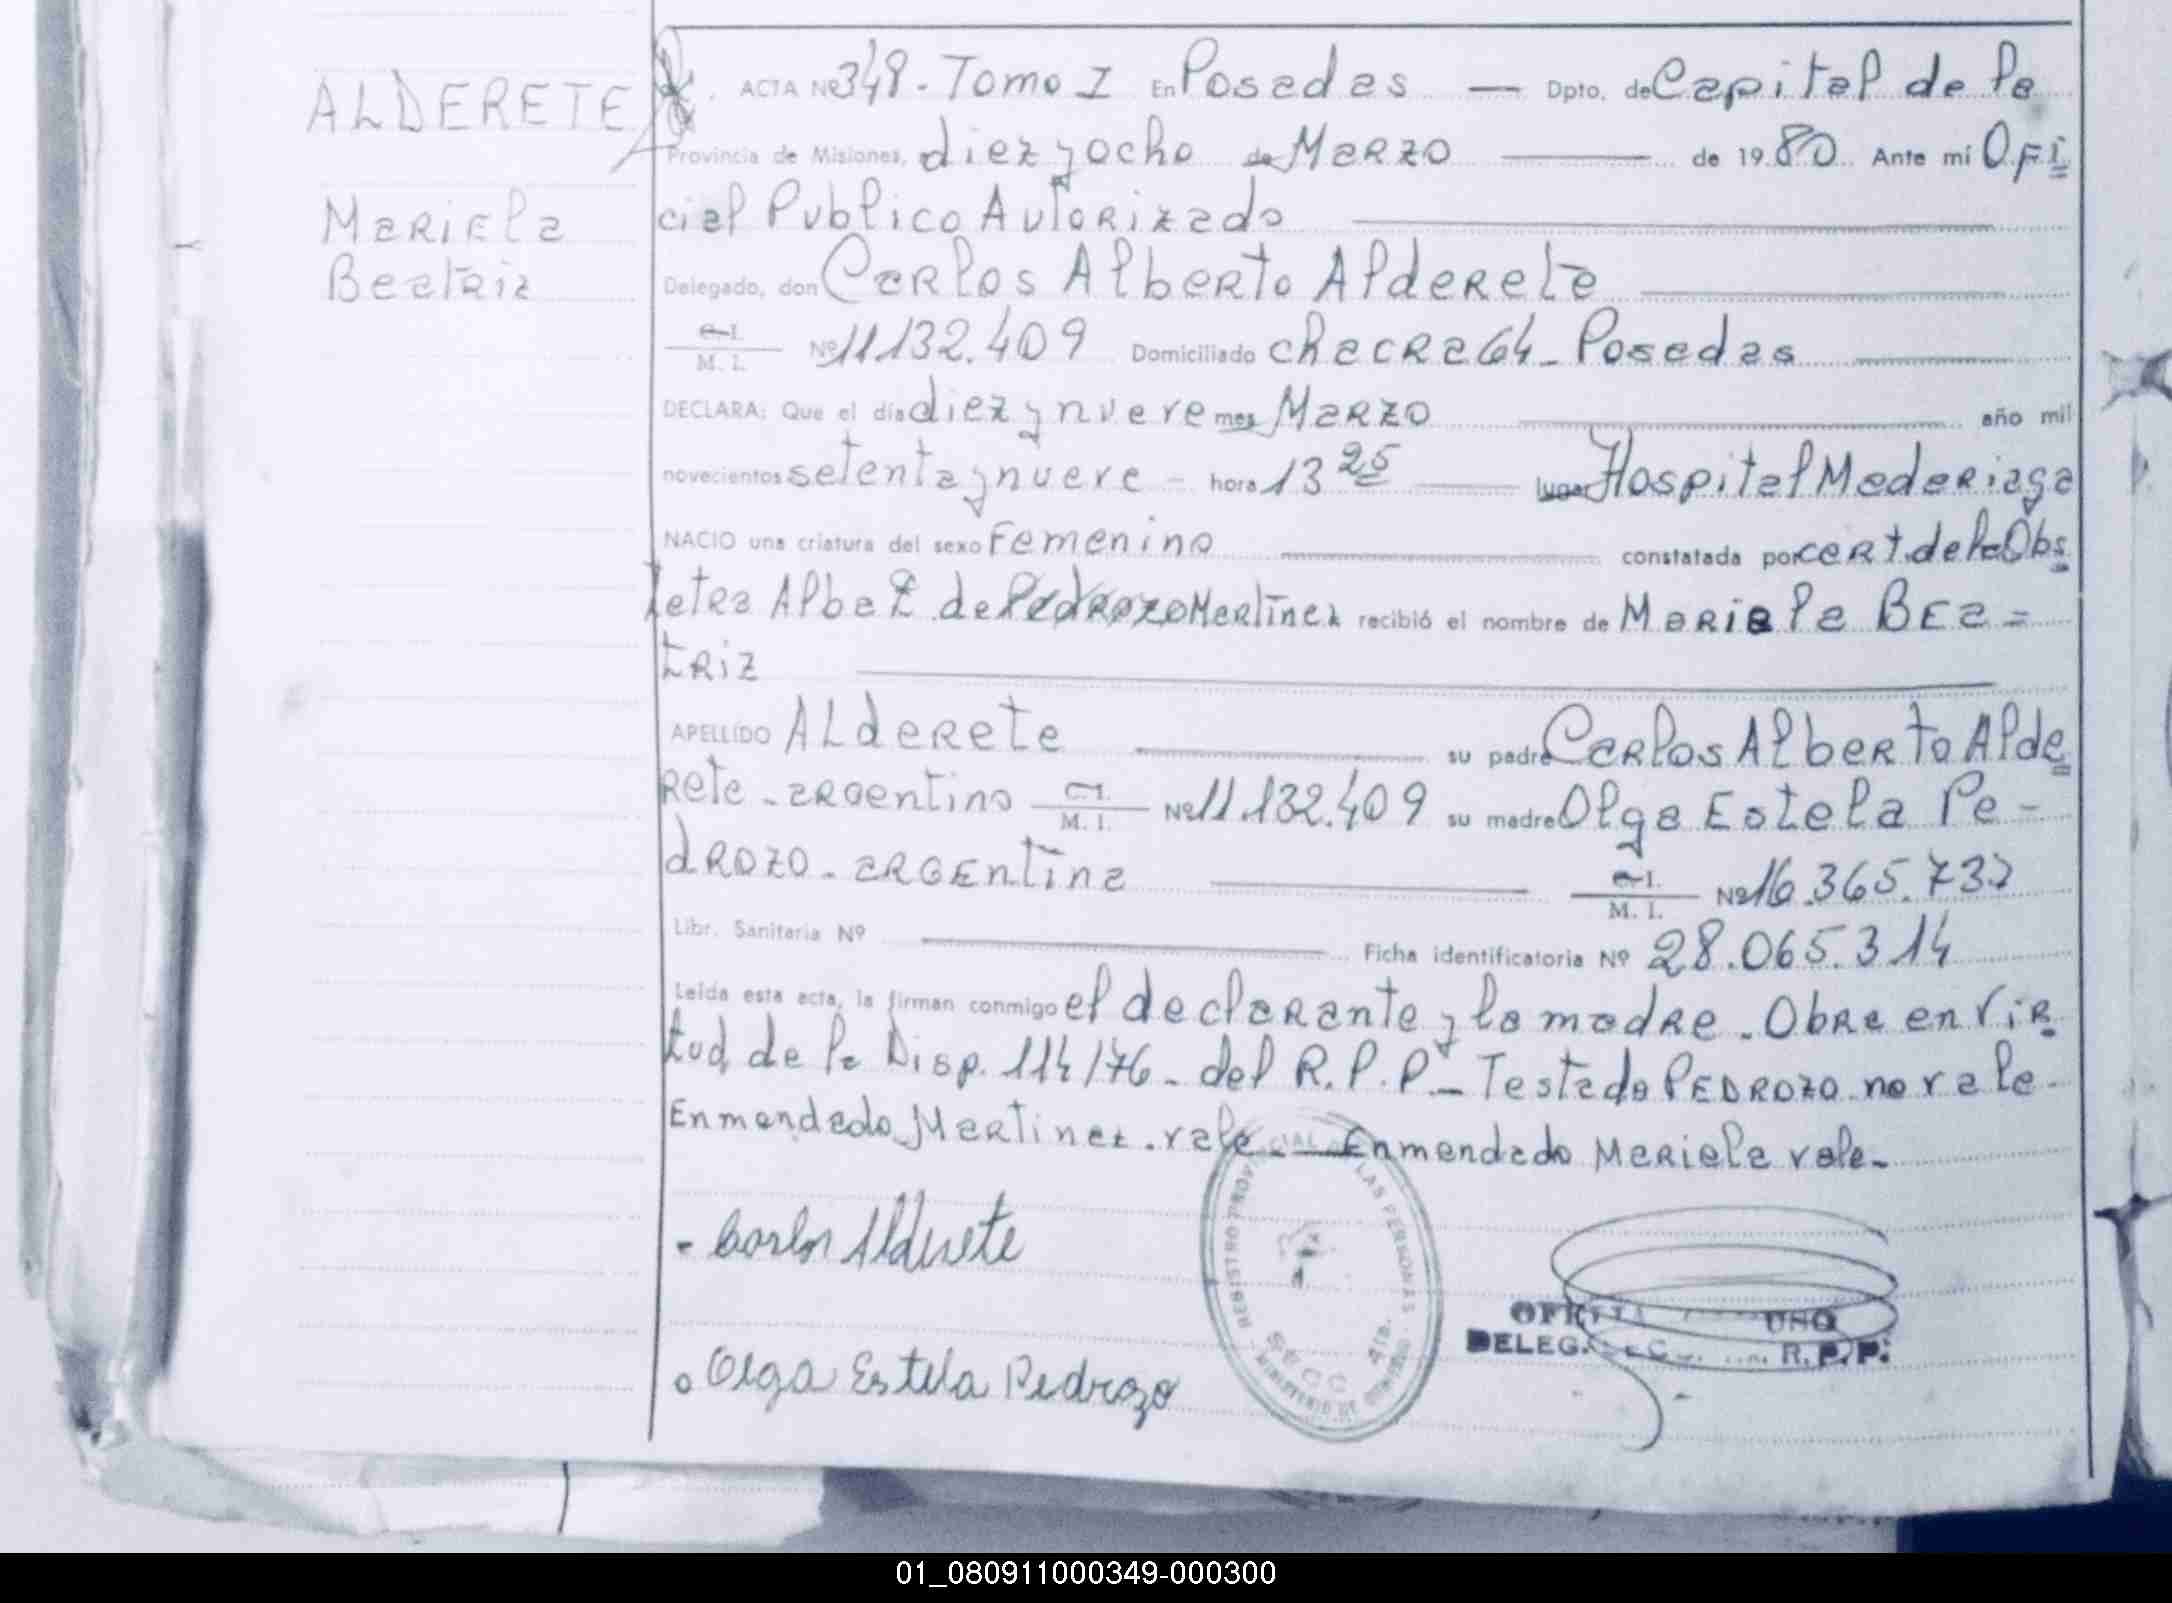 ALDERETE
Mariela
Beatriz
ACTA Nº 348 - Tomo I En Posadas — Dpto. de Capital de la
Provincia de Misiones, diez y ocho de Marzo — de 1980 Ante mí Ofi=
cial Publico Autorizado
Delegado, don Carlos Alberto Alderete
C.I. / M. I. Nº 11.132.409 Domiciliado chacra 64 - Posadas
DECLARA: Que el día diez y nueve mes Marzo año mil
novecientos setenta y nueve - hora 13 25 lugar Hospital Madariaga
NACIO una criatura del sexo Femenino constatada por cert. de la Obs
tetra Alba E. de Pedrozo Martinez recibió el nombre de Mariela Bea=
triz
APELLIDO Alderete su padre Carlos Alberto Alde
rete - argentino C.I. / M. I. Nº 11.132.409 su madre Olga Estela Pe-
drozo - argentina C.I. / M. I. Nº 16.365.737
Libr. Sanitaria Nº — Ficha identificatoria Nº 28.065.314
Leída esta acta, la firman conmigo el declarante y la madre - Obra en vir
tud de la Disp. 114/76 - del R.P.P. - Testado PEDROZO no vale -
Enmendado Martinez - vale - Enmendado Mariela vale -
- Carlos Alderete
Olga Estela Pedrozo
REGISTRO PROVINCIAL DE LAS PERSONAS
MINISTERIO DE GOBIERNO
DELEG. R.P.P.
01_080911000349-000300